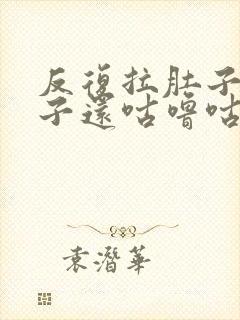 反復拉肚子
子還咕嚕咕
袁潛華